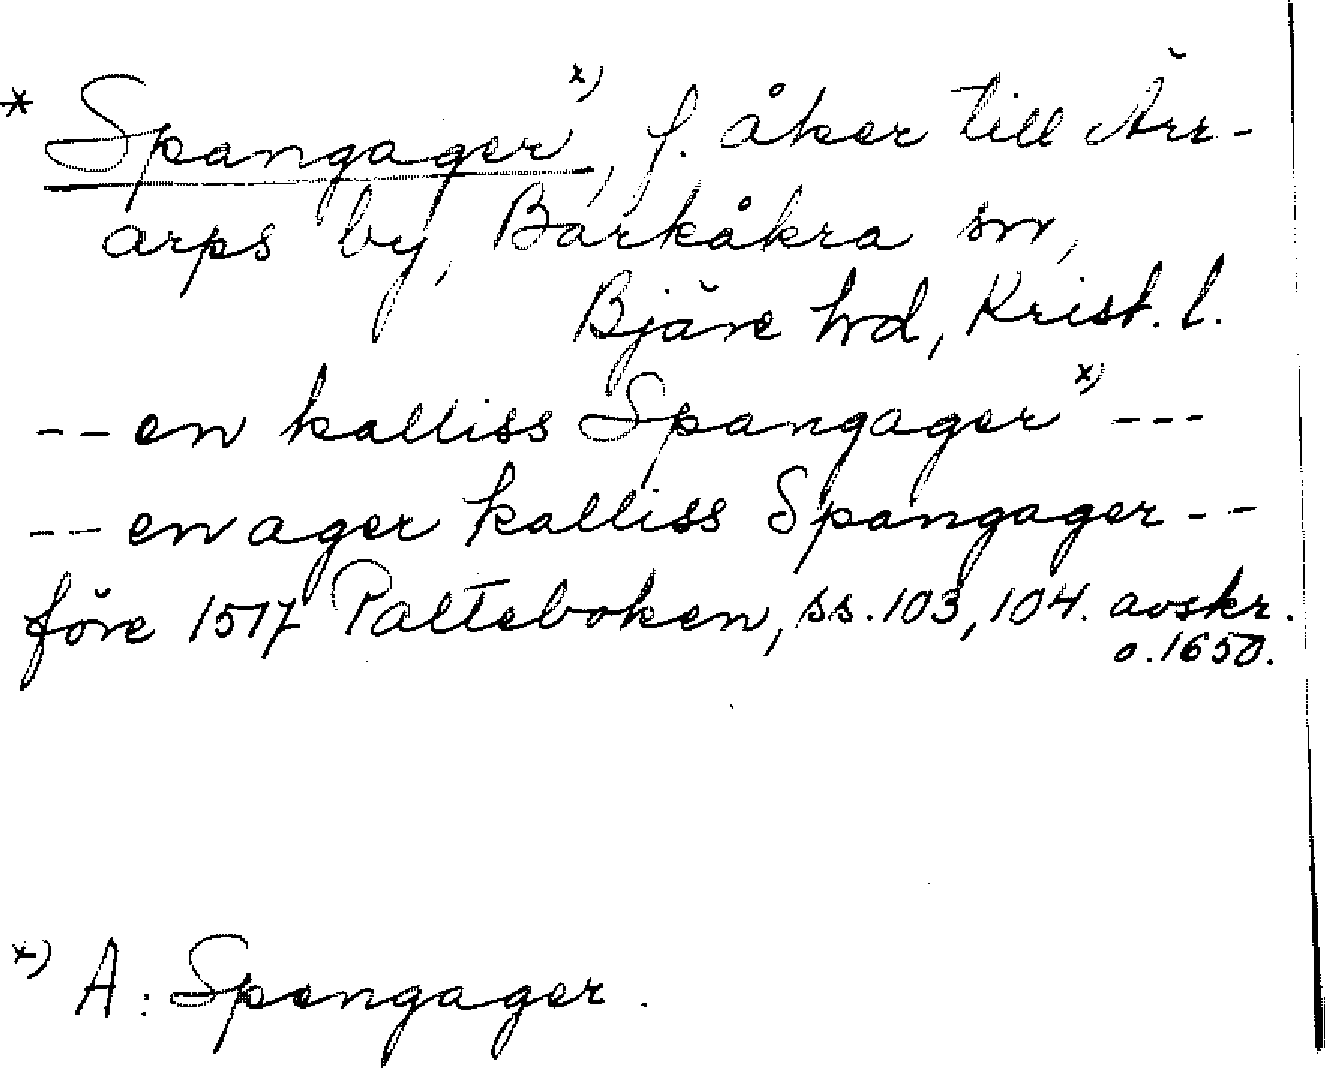 * Spangager x), f. åker till Ärr-
arps by, Barkåkra sn,
Bjäre hrd, Krist. l.
-- en kalliss Spangager x) ---
-- en ager kalliss Spangager --
före 1517 Palteboken, ss. 103, 104. avskr.
o. 1650.
x) A: Spengager.